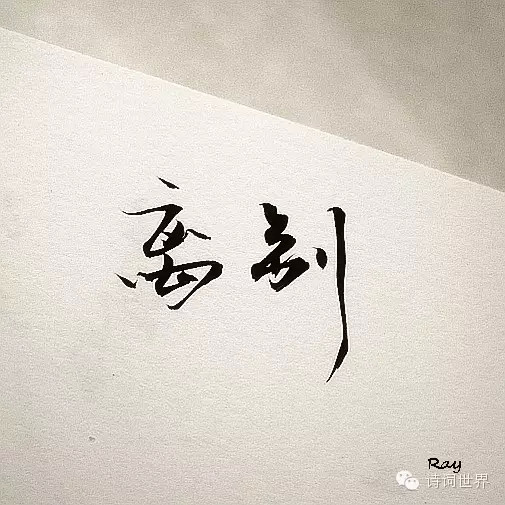 离别
Ray
诗词世界